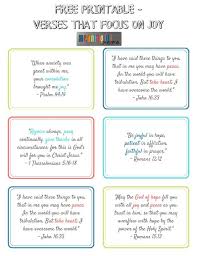 FREE PRINTABLE ~
VERSES THAT FOCUS ON JOY
"When anxiety was
great within me,
your consolation
brought me joy."
~ Psalm 94:19
"I have said these things to you,
that in me you may have peace.
In the world you will have
tribulation. But take heart; I have
overcome the world."
~ John 16:33
"Rejoice always, pray
continually, give thanks in all
circumstances; for this is God's
will for you in Christ Jesus."
~ 1 Thessalonians 5:16-18
"Be joyful in hope,
patient in affliction,
faithful in prayer."
~ Romans 12:12
"I have said these things to you,
that in me you may have peace.
In the world you will have
tribulation. But take heart; I have
overcome the world."
~ John 16:33
"May the God of hope fill you
with all joy and peace as you
trust in him, so that you may
overflow with hope by the
power of the Holy Spirit."
~ Romans 15:13